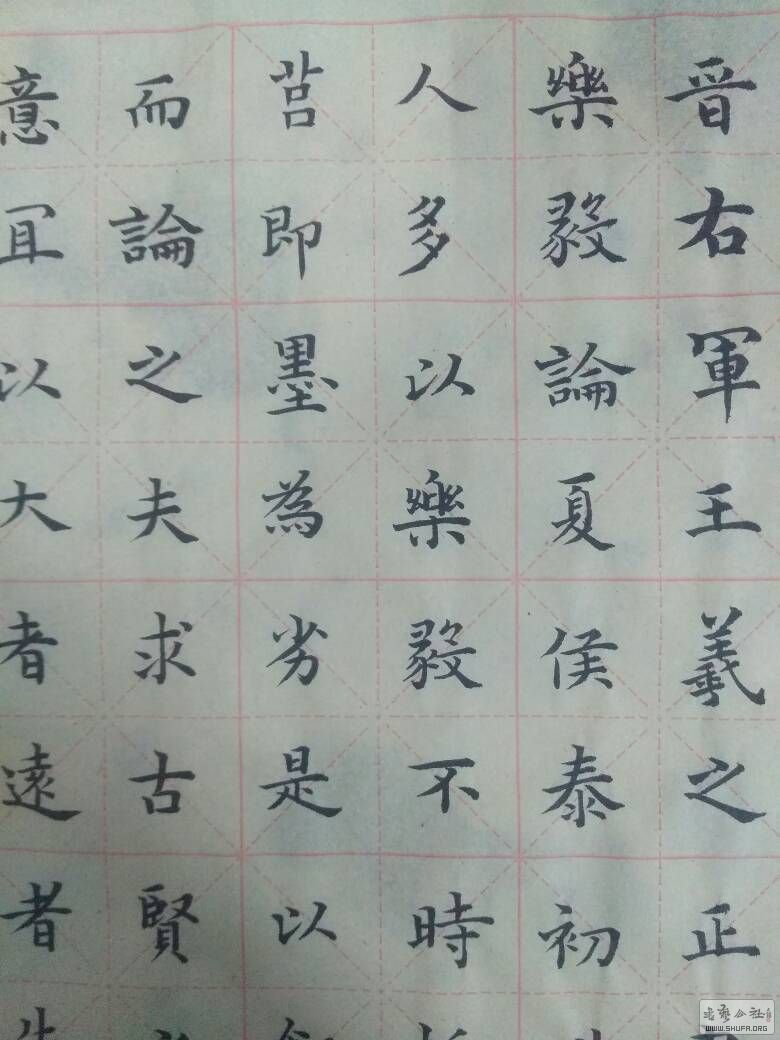 晋右軍王羲之正
樂毅論夏侯泰初
人多以樂毅不時
莒即墨為劣是以
而論之夫求古賢
意冝以大者遠者
書藝公社
WWW.SHUFA.ORG